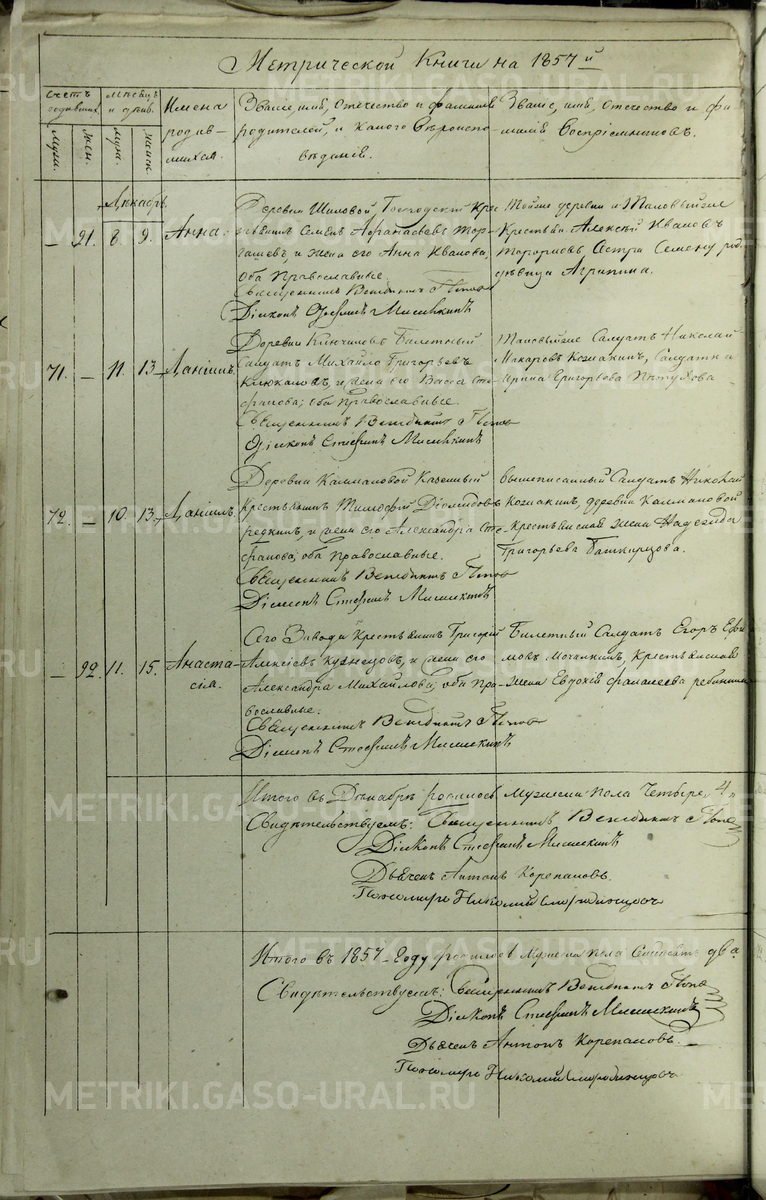 Метрической Книги на 1857й
Счетъ родившихся. Муж. Жен.
Месяцъ и день. муж. женск.
Имена родившихся.
Званіе, имя, отчество и фамилія
родителей, и какого вѣроиспо-
вѣданія.
Званіе, имя, отчество и фа-
милія воспріемниковъ.
Декабрь
— 91. 8. 9. Анна.
Деревни Шиловой, Господскій кре-
стьянинъ Семенъ Афанасьевъ
и жена его Анна Иванова,
оба Православные.
Священникъ Венедиктъ Поповъ
Діаконъ Стефанъ Мишкинъ
Тойже деревни и
Крестьян. Алексѣй Ивановъ
Семену род.
дѣвица Агрипина.
71. — 11. 13. Даніилъ.
Деревни Ключиковъ Билетный
Солдатъ Михайло Григорьевъ
и жена его Васса Сте-
фанова; оба Православные.
Священникъ Венедиктъ Поповъ
Діаконъ Стефанъ Мишкинъ
Солдатъ Николай
Макаровъ Козиакинъ, Солдатка
Ирина Григорьева Пѣтухова
72. — 10. 13. Даніилъ.
Деревни Калмаковой Казенный
Крестьянинъ Тимофей Діомидовъ
Редкинъ, и жена его Александра Сте-
фанова; оба православные.
Священникъ Венедиктъ Поповъ
Діаконъ Стефанъ Мишкинъ
Вышеписанный Солдатъ Николай
Козиакинъ, деревни Калмаковой
Крестьянская жена Надежда
Григорьева Башкирцова.
— 92. 11. 15. Анаста-
сія.
Сего Завода Крестьянинъ Григорій
Алексѣевъ Кузнецовъ, и жена его
Александра Михайлова; оба Пра-
вославные:
Священникъ Венедиктъ Поповъ
Діаконъ Стефанъ Мишкинъ
Билетный Солдатъ Егоръ Ефи-
мовъ Мочалкинъ, Крестьянская
жена Евдокія
Итого въ Декабрѣ родилось Мужеска пола Четыре, 4
Свидѣтельствуемъ: Священникъ Венедиктъ Поповъ
Діаконъ Стефанъ Мишкинъ
Дьячекъ Антонъ Корепановъ.
Пономарь Николай Смородинцовъ
Итого въ 1857 Году родилось Мужеска пола Семьдесятъ два.
Свидѣтельствуемъ: Священникъ Венедиктъ Поповъ
Діаконъ Стефанъ Мишкинъ
Дьячекъ Антонъ Корепановъ.
Пономарь Николай Смородинцовъ
METRIKI.GASO-URAL.RU